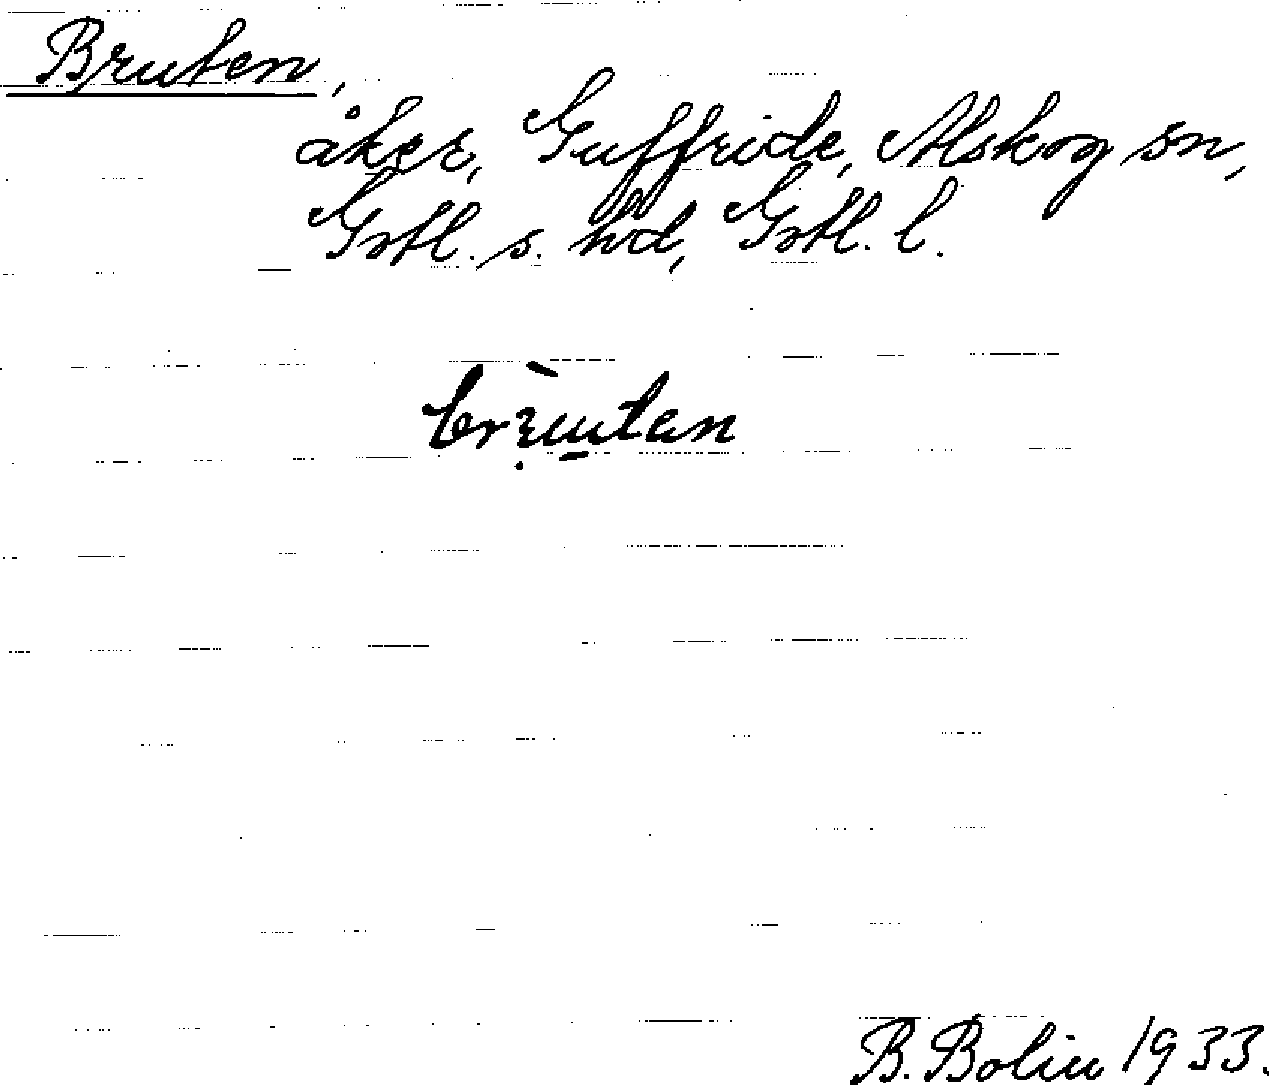 Bruten,
åker, Guffride, Alskog sn,
Gotl. s. hd, Gotl. l.
B. Bolin 1933.